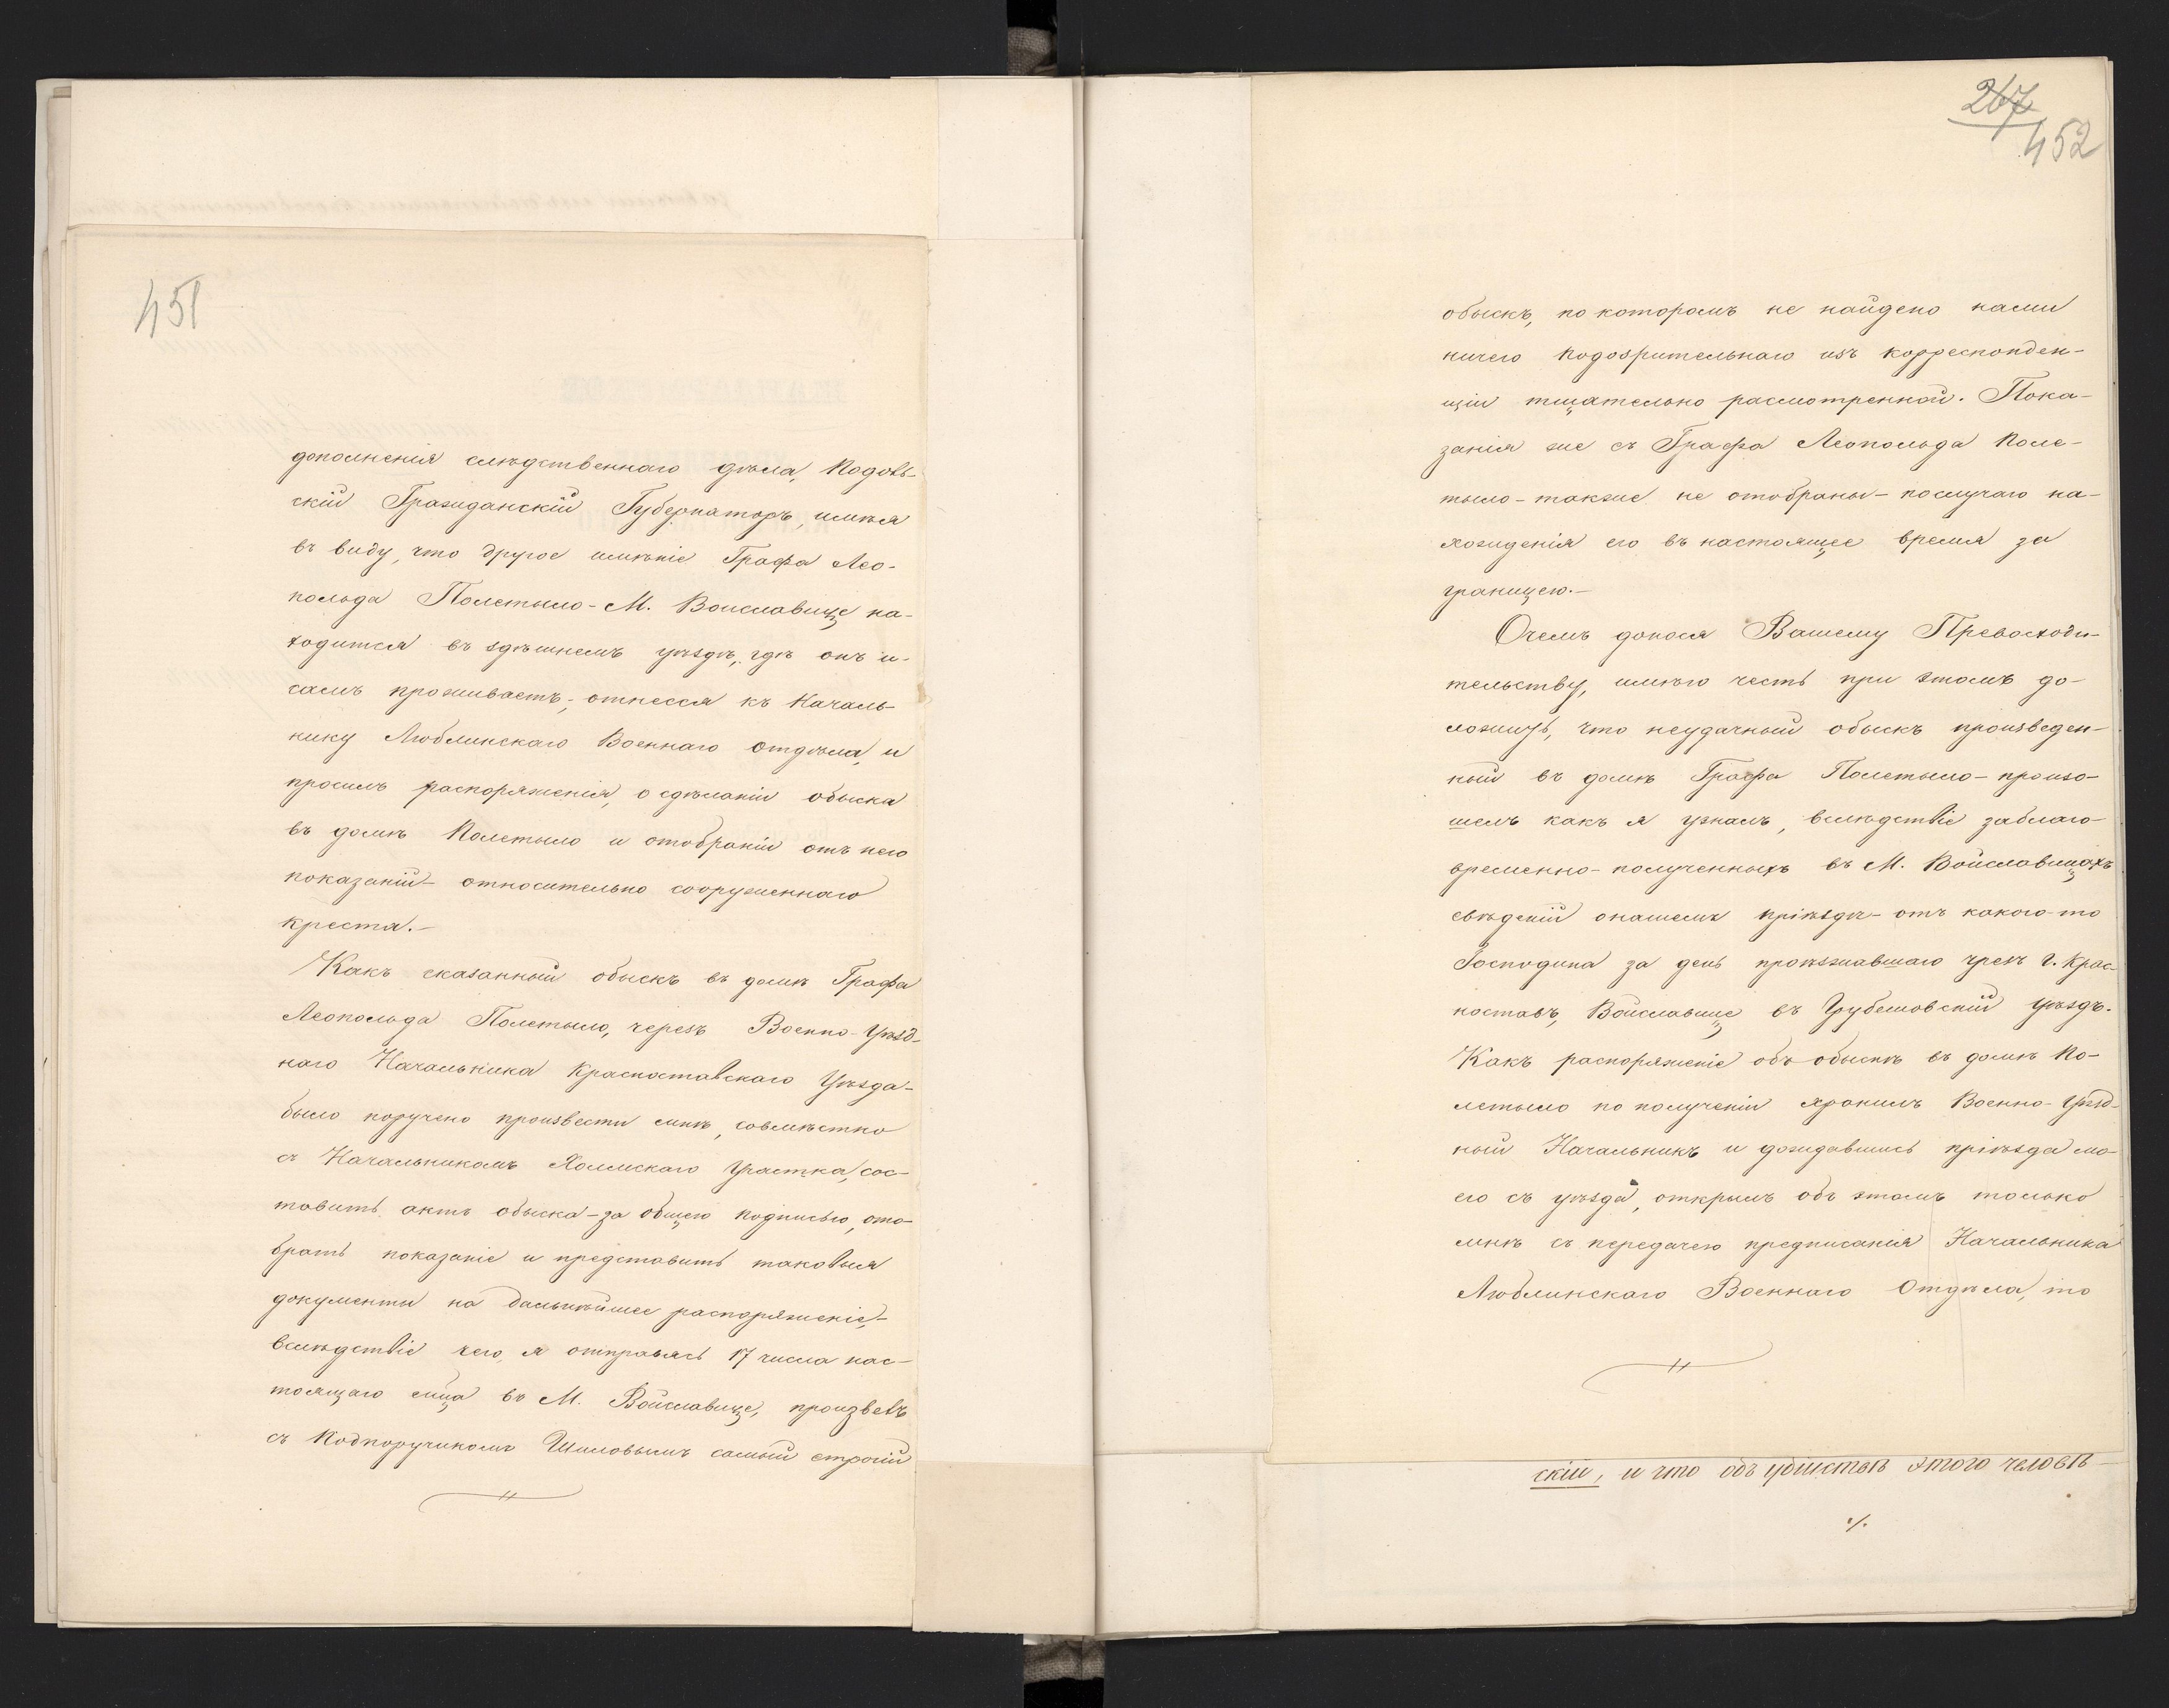 451
дополненія слѣдственнаго дѣла, Подоль-
скій Гражданскій Губернаторъ, имѣя
въ виду, что другое имѣніе Графа Лео-
польда Полетыло - М. Воиславице на-
ходится въ здѣшнемъ уѣздѣ, гдѣ онъ и-
самъ проживаетъ, отнесся къ Началь-
нику Люблинскаго Военнаго Отдѣла, и
просилъ распоряженія, о сдѣланіи обыска
въ домѣ Полетыло и отобраніи отъ него
показаній - относительно сооруженнаго
креста. -
Какъ сказанный обыскъ въ домѣ Графа
Леопольда Полетыло, черезъ Военно-Уѣзд-
наго Начальника Красноставскаго Уѣзда -
было поручено произвести мнѣ, совмѣстно
съ Начальникомъ Холмскаго Участка, сос-
тавить актъ обыска - за общею подписью, ото-
брать показаніе и представить таковыя
документы на дальнѣйшее распоряженіе, -
вслѣдствіе чего, я отправясь 17 числа нас-
тоящаго мца въ М. Войславице, произвелъ
съ Подпоручикомъ Шиловымъ самый строгій
267
452
обыскъ, по которомъ не найдено нами
ничего подозрительнаго изъ корреспонден-
ціи тщательно расмотренной. Пока-
занія же съ Графа Леопольда Поле-
тыло - также не отобраны - послучаю на-
хожденія его въ настоящее время за
границею. -
Очемъ донося Вашему Превосходи-
тельству, имѣю честь при этомъ до-
ложить, что неудачный обыскъ произведен-
ный въ домѣ Графа Полетыло - произо-
шелъ какъ я узналъ, вслѣдствіе заблаго-
временно - полученныхъ въ М. Войславицахъ
свѣдѣній онашемъ пріѣздѣ - отъ какого-то
Господина за день проѣзжавшаго чрезъ г. Крас-
ноставъ, Войславице въ Грубешовскій уѣздъ.
Какъ распоряженіе объ обыскѣ въ домѣ По-
летыло по полученіи хранилъ Военно-Уѣзд-
ный Начальникъ и дождавшись пріѣзда мо-
его съ уѣзда, открылъ объ этомъ только
мнѣ съ передачею предписанія Начальника
Люблинскаго Военнаго Отдѣла, то
скій, и что объ убійствѣ этого человѣ-
./.